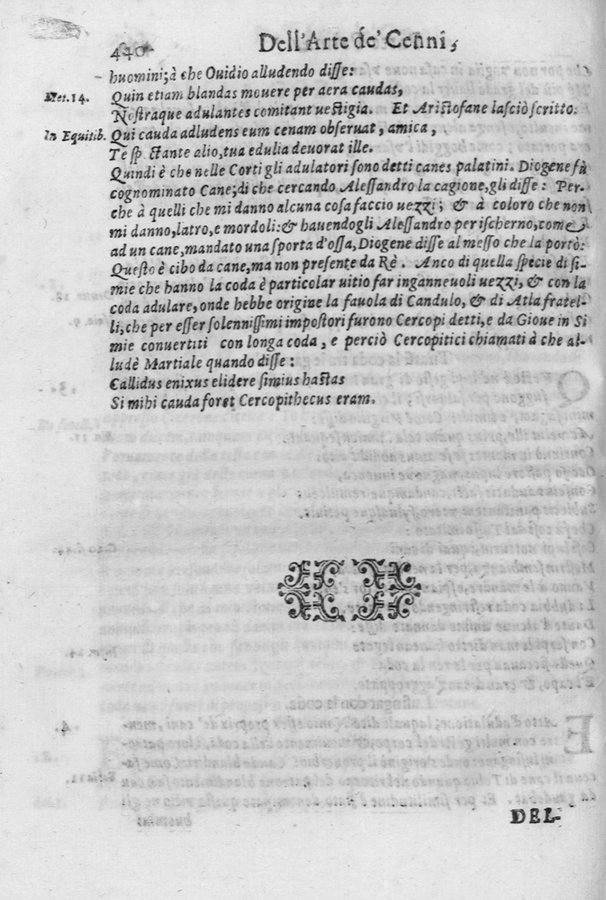 440 Dell'Arte de' Cenni,
huomini; à che Ouidio alludendo disse:
Met. 14. Quin etiam blandas mouere per aera caudas,
Nostraque adulantes comitant uestigia. Et Aristofane lasciò scritto.
In Equitib. Qui cauda adludens eum cenam obseruat, amica,
Te sp ctante alio, tua edulia deuorat ille.
Quindi è che nelle Corti gli adulatori sono detti canes palatini. Diogene fù
cognominato Cane; di che cercando Alessandro la cagione, gli disse: Per-
che à quelli che mi danno alcuna cosa faccio uezzi; & à coloro che non
mi danno, latro, e mordoli: & hauendogli Alessandro per ischerno, come
ad un cane, mandato una sporta d'ossa, Diogene disse al messo che la portò:
Questo è cibo da cane, ma non presente da Rè. Anco di quella specie di si-
mie che hanno la coda è particolar uitio far inganneuoli uezzi, & con la
coda adulare, onde hebbe origine la fauola di Candulo, & di Atla fratel-
li, che per esser solennissimi impostori furono Cercopi detti, e da Gioue in Si
mie conuertiti con longa coda, e perciò Cercopitici chiamati à che al-
ludè Martiale quando disse:
Callidus enixus elidere simius hastas
Si mihi cauda foret Cercopithecus eram.
DEL-